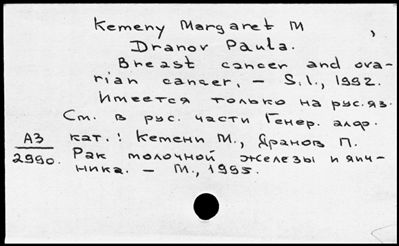 Kemeny Margaret M ,
Dranov Paula.
Breast cancer and ova-
rian cancer. – S.l., 1992.
Имеется только на рус.яз.
См. в рус. части Генер. алф.
АЗ кат.: Кемени М., Дранов П.
2990. Рак молочной железы и яич-
ника. – М., 1995.